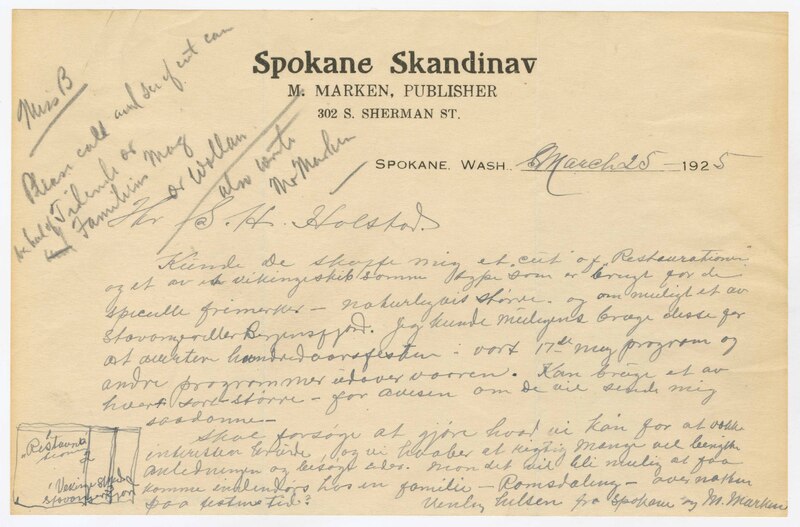 Spokane Skandinav
M. MARKEN, PUBLISHER
302 S. SHERMAN ST.
SPOKANE, WASH. March 25 - 1925
Miss B
Please call and see if cut can
be had of Tidende or
Familiens Mag
or Wollan
also write
Mr Marken
Hr S. H. Holstad.
Kunde De skaffe mig et cut af "Restaurationen"
og et av vikingeskib samme type som er brugt for de
specielle frimerker - naturligvis större. og om muligt et av
Stavangerfjord eller Bergensfjord. Jeg kunde bruge disse for
at avertere hundredaarsfesten i vort 17de mai program og
andre programmer udover vaaren. Kan bruge et av
hvert sort större - for avisen om De vil sende mig
saadanne -
Skal forsøge at gjöre hvad vi kan for at vække
interessen herude, og vi haaber at rigtig mange vil benytte
anledningen og besøge eders. Mon det vil bli mulig at faa
komme indendørs hos en familie - Romsdaling - over natten
paa festens tid?
Venlig hilsen fra Spokane og M. Marken
"Restauration"
2
Vikingeskib
Stavangerfjord